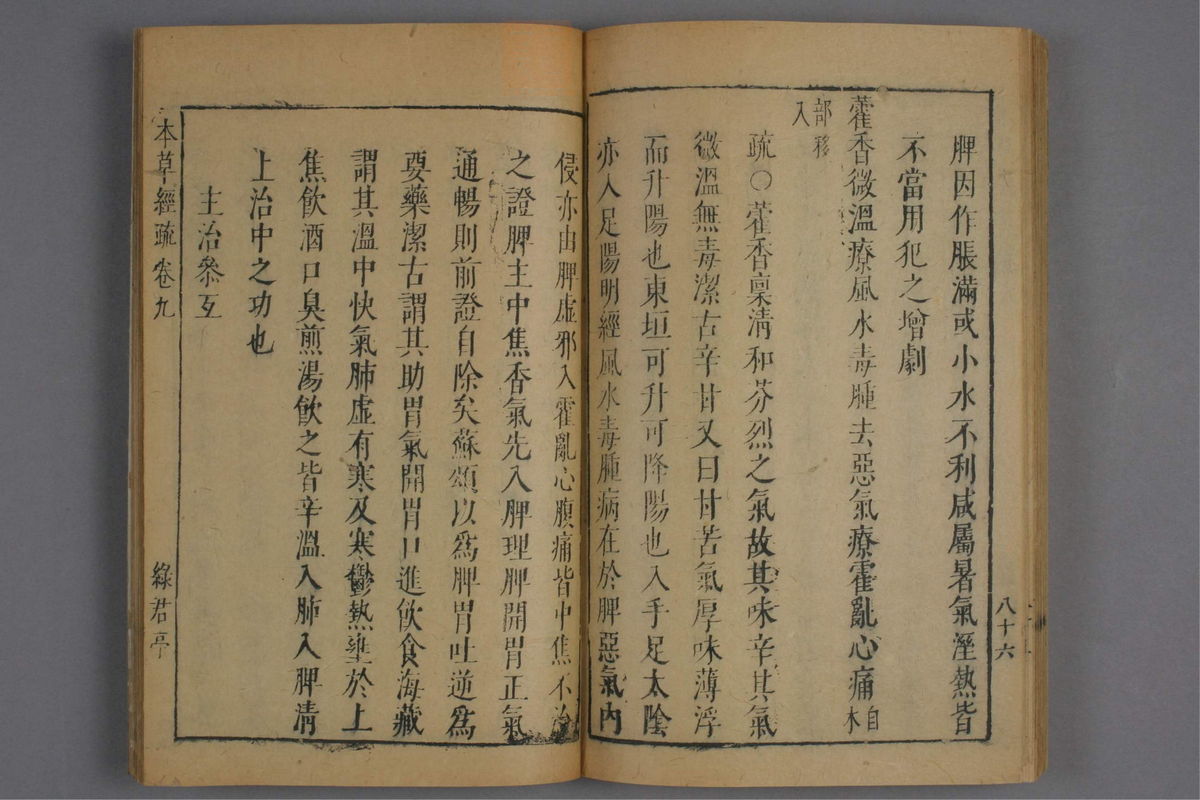 脾因作脹滿或小水不利咸屬暑氣溼熱皆
不當用犯之增劇
藿香微溫療風水毒腫去惡氣療霍亂心痛自木
部移
入
疏○藿香稟清和芬烈之氣故其味辛其氣
微溫無毒潔古辛甘又曰甘苦氣厚味薄浮
而升陽也東垣可升可降陽也入手足太陰
亦入足陽明經風水毒腫病在於脾惡氣內
八十六
侵亦由脾虛邪入霍亂心腹痛皆中焦不治
之證脾主中焦香氣先入脾理脾開胃正氣
通暢則前證自除矣蘇頌以爲脾胃吐逆爲
要藥潔古謂其助胃氣開胃口進飲食海藏
謂其溫中快氣肺虛有寒及寒鬱熱壅於上
焦飲酒口臭煎湯飲之皆辛溫入肺入脾清
上治中之功也
主治叅互
本草經疏 卷九
綠君亭